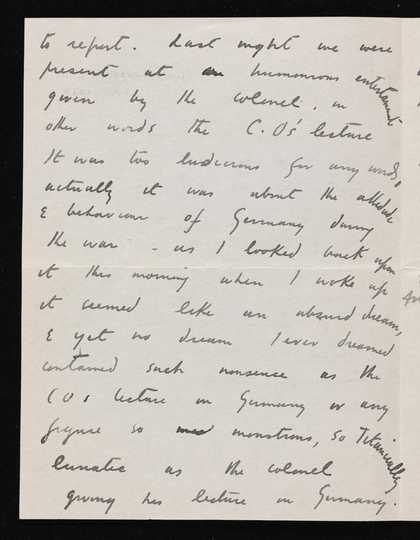 to report. Last night we were
present at an humourous entertainment
given by the colonel. in
other words the C.O's lecture
It was too ludicrous for any words,
actually it was about the attitude
& behaviour of Germany during
the war - as I looked back upon
it this morning when I woke up
it seemed like an absurd dream,
& yet no dream I ever dreamed
contained such nonsense as the
COs lecture on Germany or any
figure so monstrous, so Titanically
lunatic as the colonel
giving his lecture on Germany.